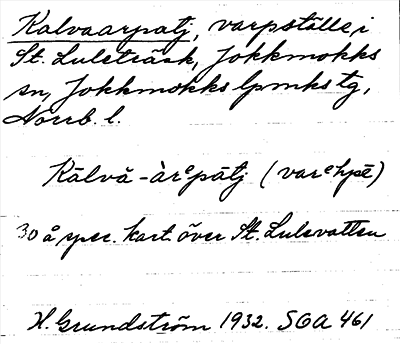 Kalvaarpatj, varpställe i
St. Luleträsk, Jokkmokks
sn, Jokkmokks lpmks tg,
Norrb. l.
Kālvă-àrᵉpātj (varᵉhpē)
30 å spec. kart. över St. Lulevatten
H. Grundström 1932. SOA 461